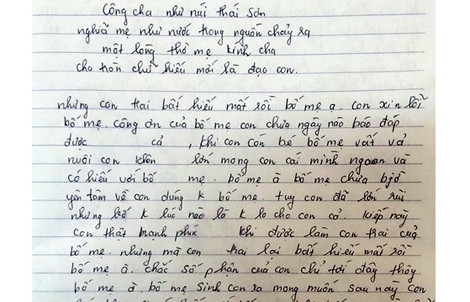 Công cha như núi thái sơn
nghĩa mẹ như nước trong nguồn chảy ra
một lòng thờ mẹ kính cha
cho tròn chữ hiếu mới là đạo con.
nhưng con trai bất hiếu mất rồi bố mẹ ạ. con xin lỗi
bố mẹ. Công ơn của bố mẹ con chưa ngày nào báo đáp
được cả, khi con còn bé bố mẹ vất vả
nuôi con khôn lớn mong con cái mình ngoan và
có hiếu với bố mẹ. bố mẹ à bố mẹ chưa bjờ
yên tâm về con đúng k bố mẹ. tuy con đã lớn rùi
nhưng bố k lúc nào là k lo cho con cả. kiếp này
con thật hạnh phúc khi được làm con trai của
bố mẹ. nhưng mà con trai lại bất hiếu mất rồi
bố mẹ à. chắc số phận của con chỉ tới đây thôi
bố mẹ à. bố mẹ sinh con ra mong muốn sau này con